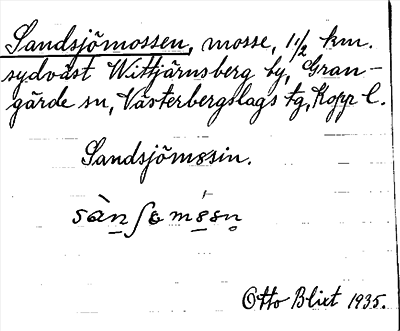 Sandsjömossen, mosse, 1 1/2 km.
sydväst Wittjärnsberg by, Gran-
gärde sn, Västerbergslags tg, Kopp l.
Sandsjömssin.
Otto Blixt 1935.